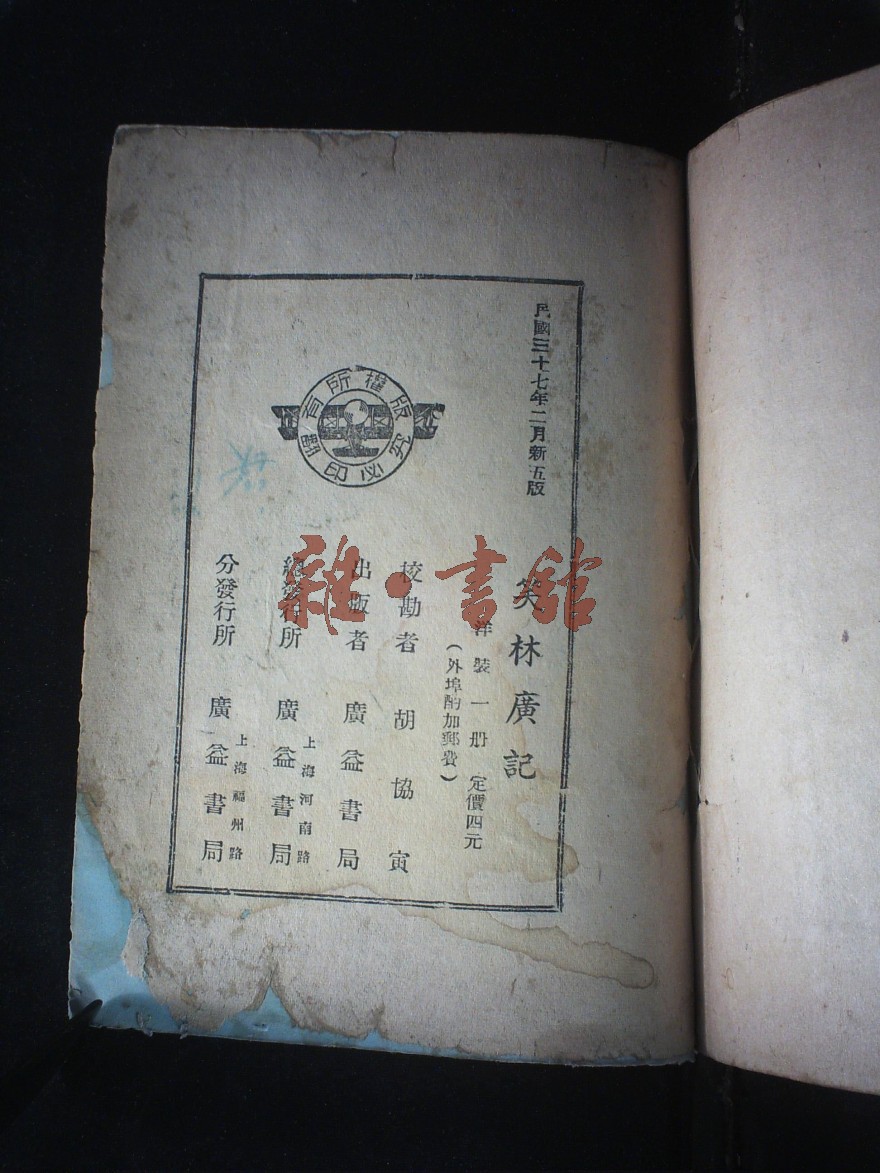 民國三十七年二月新五版
版權所有
翻印必究
笑林廣記
洋裝一册 (定價四元
(外埠酌加郵費)
校勘者 胡協寅
出版者 廣益書局
總發行所 廣益書局
上海河南路
分發行所 廣益書局
上海福州路
雜·書館